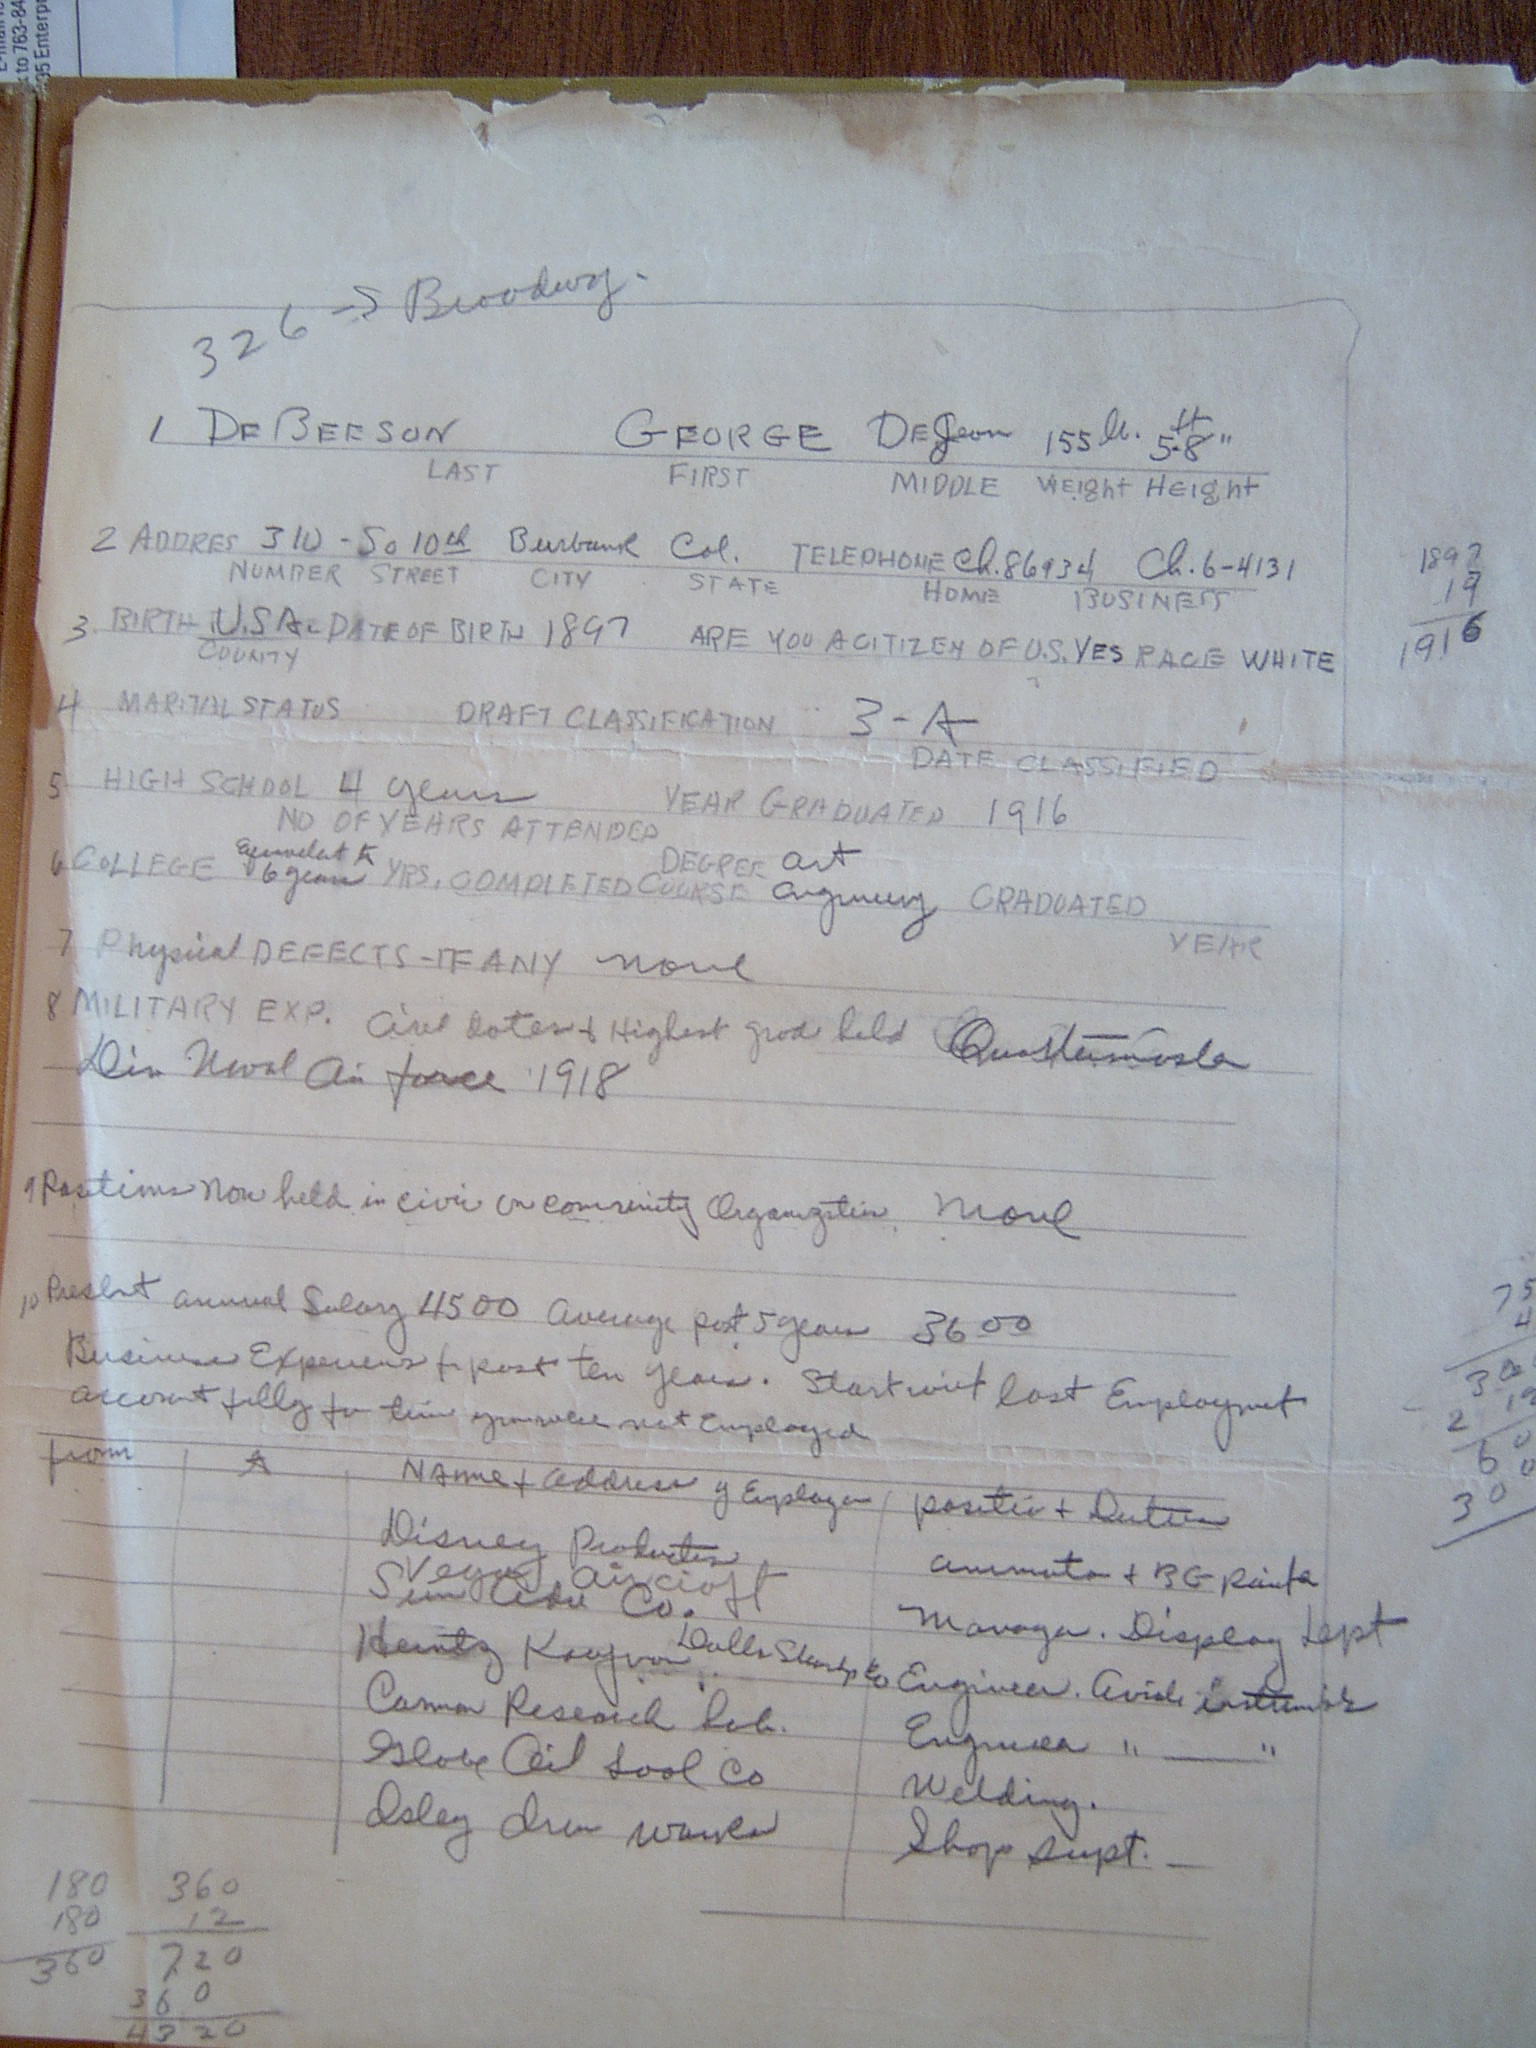 to 763-84
35 Enterpr
326 - S Broadwy.
1 DE BEESON GEORGE DEJean 155 lb. 5-8" ft
LAST FIRST MIDDLE Weight Height
2 ADDRES 310 - So 10th Burbank Cal. TELEPHONE Ch.86934 Ch. 6-4131
NUMBER STREET CITY STATE HOME BUSINESS
1897
19
1916
3 BIRTH U.S.A. DATE OF BIRTH 1897 ARE YOU A CITIZEN OF U.S. YES RACE WHITE
COUNTY
4 MARITAL STATUS DRAFT CLASSIFICATION 3-A
DATE CLASSIFIED
5 HIGH SCHOOL 4 years YEAR GRADUATED 1916
NO OF YEARS ATTENDED
6 COLLEGE Equivalent to 6 years YRS. COMPLETED DEGREE art
COURSE engineering GRADUATED
YEAR
7 Physical DEFECTS - IF ANY none
8 MILITARY EXP. Give dates + Highest grade held Quartermaster
Naval Air force 1918
9 Positions now held in civic or community Organization. None
10 Present annual Salary 4500 average past 5 years 3600
Business Experience for past ten years. Start with last Employment
account fully for time not Employed
from Name + address of Employer position + Duties
Disney Production animator + BG painter
Vega aircraft
Co. Manager. Display Dept
Heintz Kaufman Engineer.
Research Lab. Engineer " — "
Globe Oil tool Co Welding.
Shop supt. —
75
4
300
180 360
180 12
360 720
360
4320